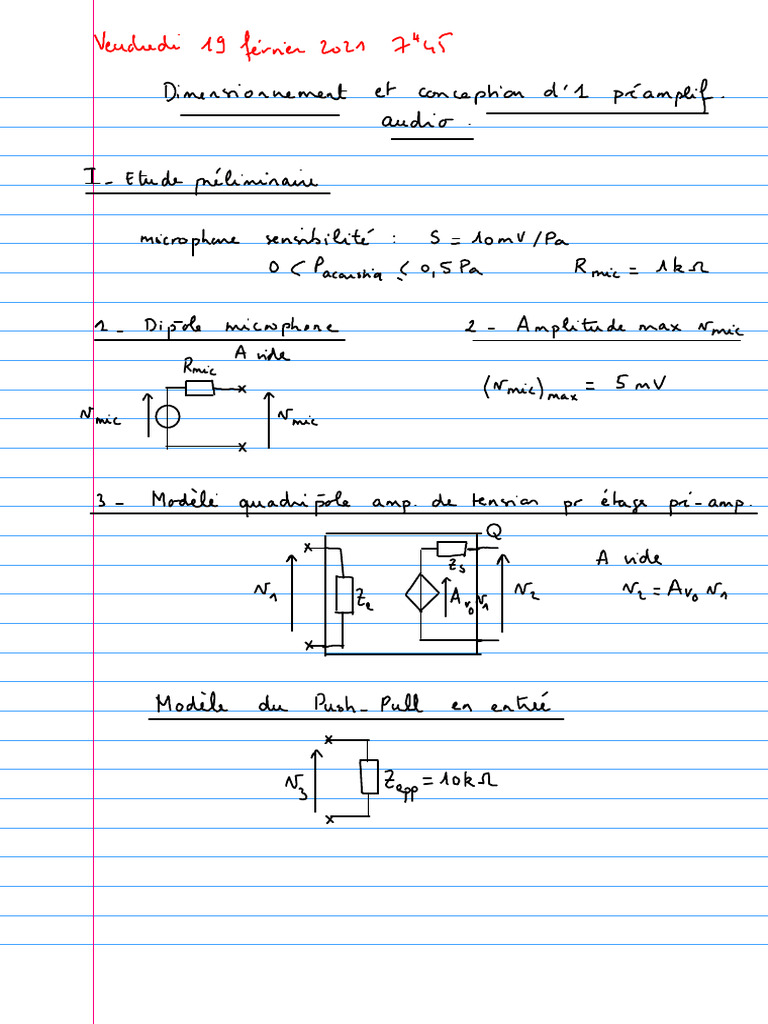 Vendredi 19 février 2021 7h45
Dimensionnement et conception d'1 préamplif.
audio.
I - Etude préliminaire
microphone sensibilité : S = 10 mV/Pa
0 < Pacoustiq ≤ 0,5 Pa Rmic = 1 kΩ
1 - Dipôle microphone
2 - Amplitude max vmic
A vide
Rmic
vmic
vmic
(vmic)max = 5 mV
3 - Modèle quadripôle amp. de tension pr étage pré-amp.
Q
v1
Ze
Zs
Av0 v1
v2
A vide
v2 = Av0 v1
Modèle du Push-Pull en entrée
v3
Zepp = 10 kΩ